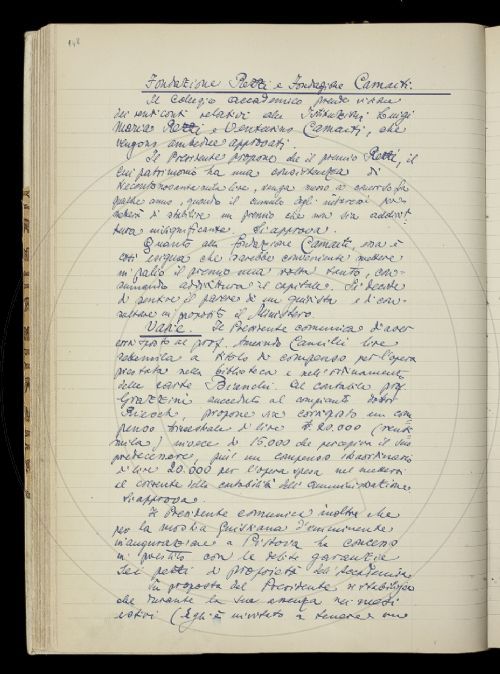 148
Fondazione Rezzi e Fondazione Camaiti.
Il Collegio accademico prende visione
dei rendiconti relativi alle Istituzioni Luigi
Maria Rezzi e Venturino Camaiti, che
vengono ambedue approvati.
Il Presidente propone che il premio Rezzi, il
cui patrimonio ha una consistenza di
lire, venga messo a concorso fra
qualche anno, quando il cumulo degli interessi per-
metterà di stabilire un premio che non sia addirit-
tura insignificante. Si approva.
Quanto alla fondazione Camaiti, essa è
così esigua che sarebbe conveniente mettere
in palio il premio una volta tanto, con-
sumando addirittura il capitale. Si decide
di sentire il parere di un giurista e di con-
sultare in proposito il Ministero.
Varie. Il Presidente comunica di aver
corrisposto al prof. Amerindo Camilli lire
a titolo di compenso per l'opera
prestata nella biblioteca e nell'ordinamento
delle carte Bianchi. Al contabile prof.
Grazzini succeduto al compianto
propone sia corrisposto un com-
penso trimestrale di lire 20.000 (venti
mila) invece di 15.000 che percepiva il suo
predecessore, più un compenso straordinario
di lire 20.000 per l'opera spesa nel mettersi
al corrente della contabilità dell'amministrazione.
Si approva.
Il Presidente comunica inoltre che
per la mostra d'imminente
inaugurazione a Pistoia ha concesso
in prestito con le debite garanzie
dei pezzi di proprietà dell'Accademia.
Su proposta del Presidente si stabilisce
che durante la sua assenza nei mesi
estivi (Egli è invitato a tenere un